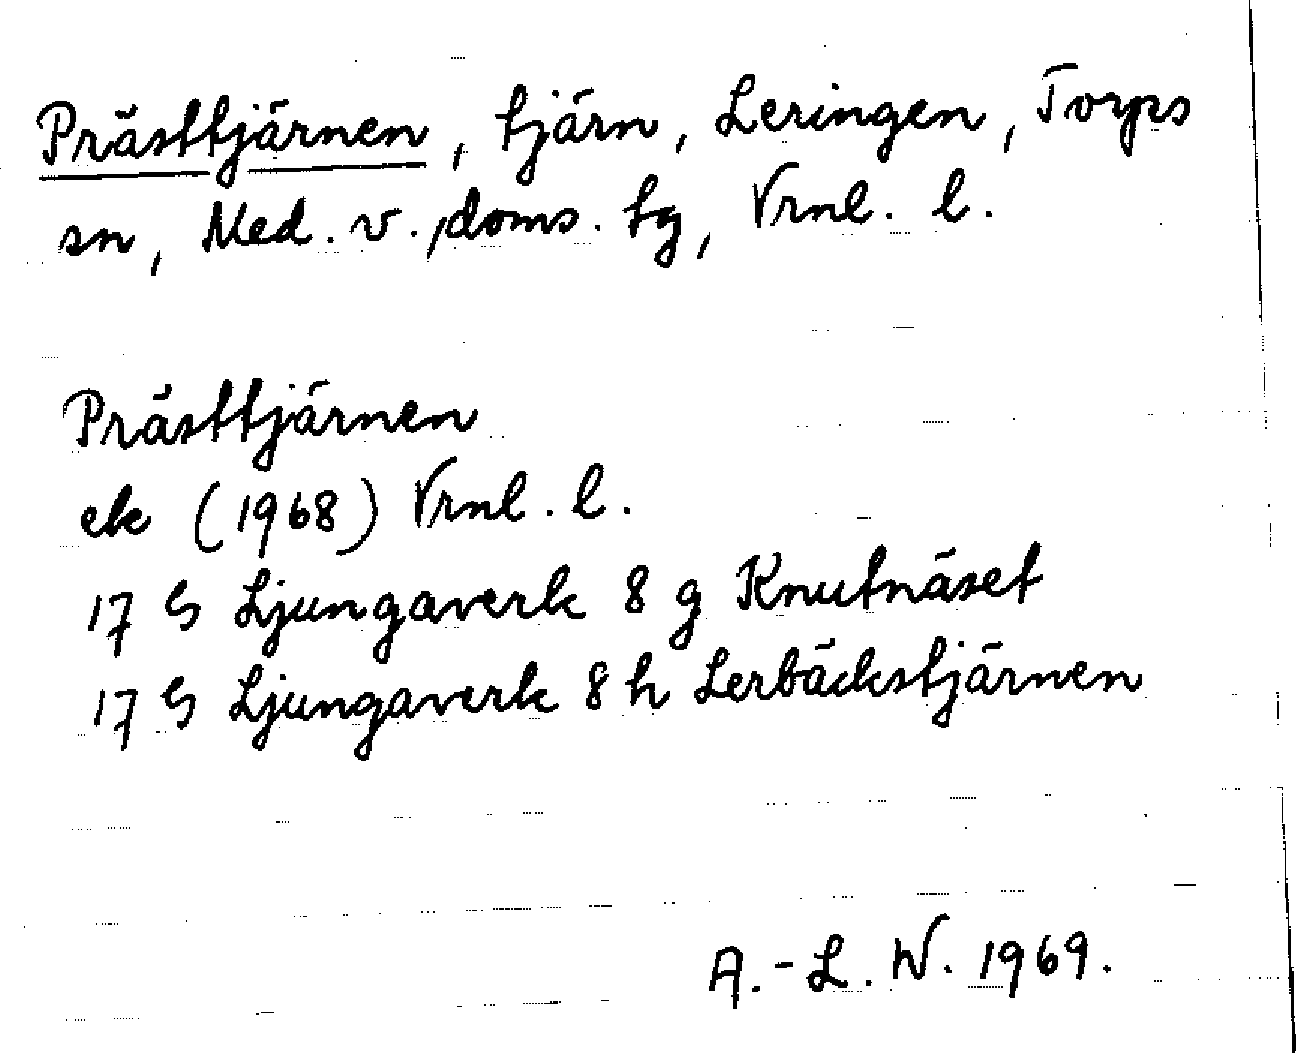 Prästtjärnen, tjärn, Leringen, Torps
sn, Med. v., doms. tg, Vrnl. l.
Prästtjärnen
ek (1968) Vrnl. l.
17 G Ljungaverk 8 g Knutnäset
17 G Ljungaverk 8 h Lerbäckstjärnen
A.-L. W. 1969.